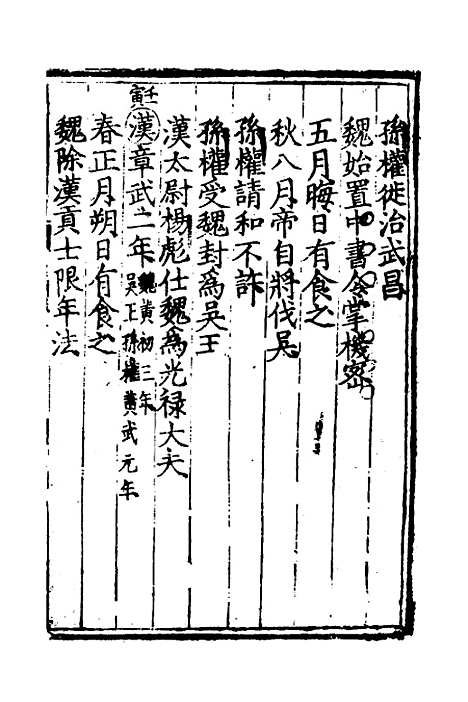 孫權徙治武昌
魏始置中書令掌機密
五月晦日有食之
秋八月帝自將伐吳
孫權請和不許
孫權受魏封為吳王
漢太尉楊彪仕魏為光祿大夫
壬寅
漢章武二年魏黃初三年
吳王孫權黃武元年
春正月朔日有食之
魏除漢貢士限年法